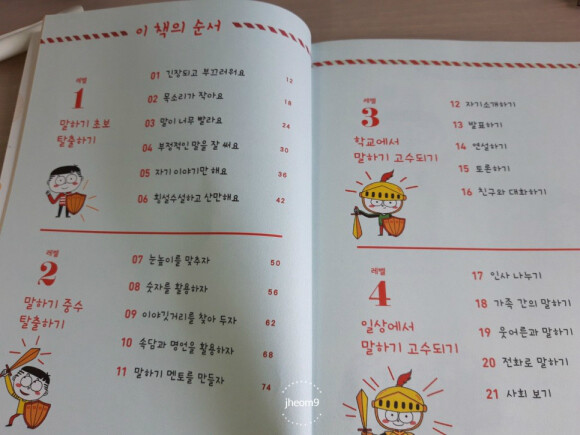 이 책의 순서
레벨
1
말하기 초보
탈출하기
01 긴장되고 부끄러워요 12
02 목소리가 작아요 18
03 말이 너무 빨라요 24
04 부정적인 말을 잘 써요 30
05 자기 이야기만 해요 36
06 횡설수설하고 산만해요 42
레벨
2
말하기 중수
탈출하기
07 눈높이를 맞추자 50
08 숫자를 활용하자 56
09 이야깃거리를 찾아 두자 62
10 속담과 명언을 활용하자 68
11 말하기 멘토를 만들자 74
레벨
3
학교에서
말하기 고수되기
12 자기소개하기
13 발표하기
14 연설하기
15 토론하기
16 친구와 대화하기
레벨
4
일상에서
말하기 고수되기
17 인사 나누기
18 가족 간의 말하기
19 웃어른과 말하기
20 전화로 말하기
21 사회 보기
jheom9